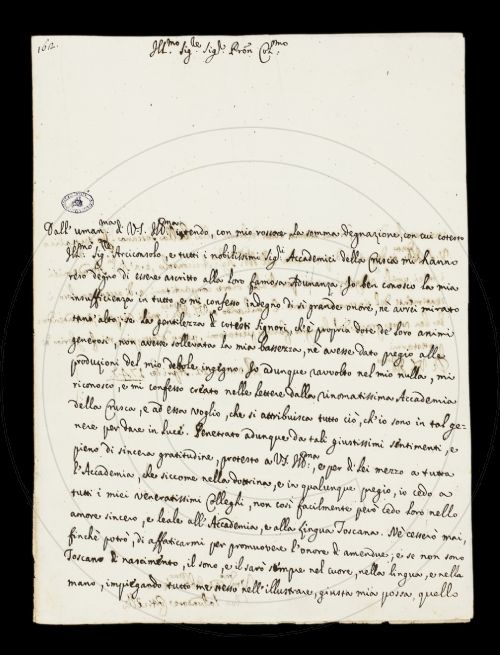 1612.
Ill.mo Sig.re Sig.r Pron Col.mo
Dall'uman.ma di V.S. Ill.ma intendo, con mio rossore, la somma degnazione, con cui cotesto
Ill.mo Sig.re Arciconsolo, e tutti i nobilissimi Sig.ri Accademici della Crusca mi hanno
reso degno di essere ascritto alla loro famosa Adunanza. Io ben conosco la mia
insufficienza in tutto, e mi confesso indegno di sì grande onore, nè avrei mirato
tant'alto, se la gentilezza di cotesti Signori, ch'è propria dote de' loro animi
generosi, non avesse sollevata la mia bassezza, ne avesse dato pregio alle
produzioni del mio debole ingegno. Io adunque ravvolto nel mio nulla, mi
riconosco, e mi confesso creato nelle lettere dalla rinomatissima Accademia
della Crusca, e ad essa voglio, che si attribuisca tutto ciò, ch'io sono in tal ge-
nere per dare in luce. Penetrato adunque da tali giustissimi sentimenti, e
pieno di sincera gratitudine, protesto a V.S. Ill.ma, e per di lei mezzo a tutta
l'Accademia, che siccome nella dottrina, e in qualunque pregio, io cedo a
tutti i miei veneratissimi Colleghi, non così facilmente però cedo loro nello
amore sincero, e leale all'Accademia, e alla Lingua Toscana. Nè cesserò mai,
finchè potrò, di affaticarmi per promuovere l'onore d'amendue; e se non sono
Toscano di nascimento, il sono, e il sarò sempre nel cuore, nella lingua, e nella
mano, impiegando tutto me stesso nell'illustrare, giusta mia possa, quello